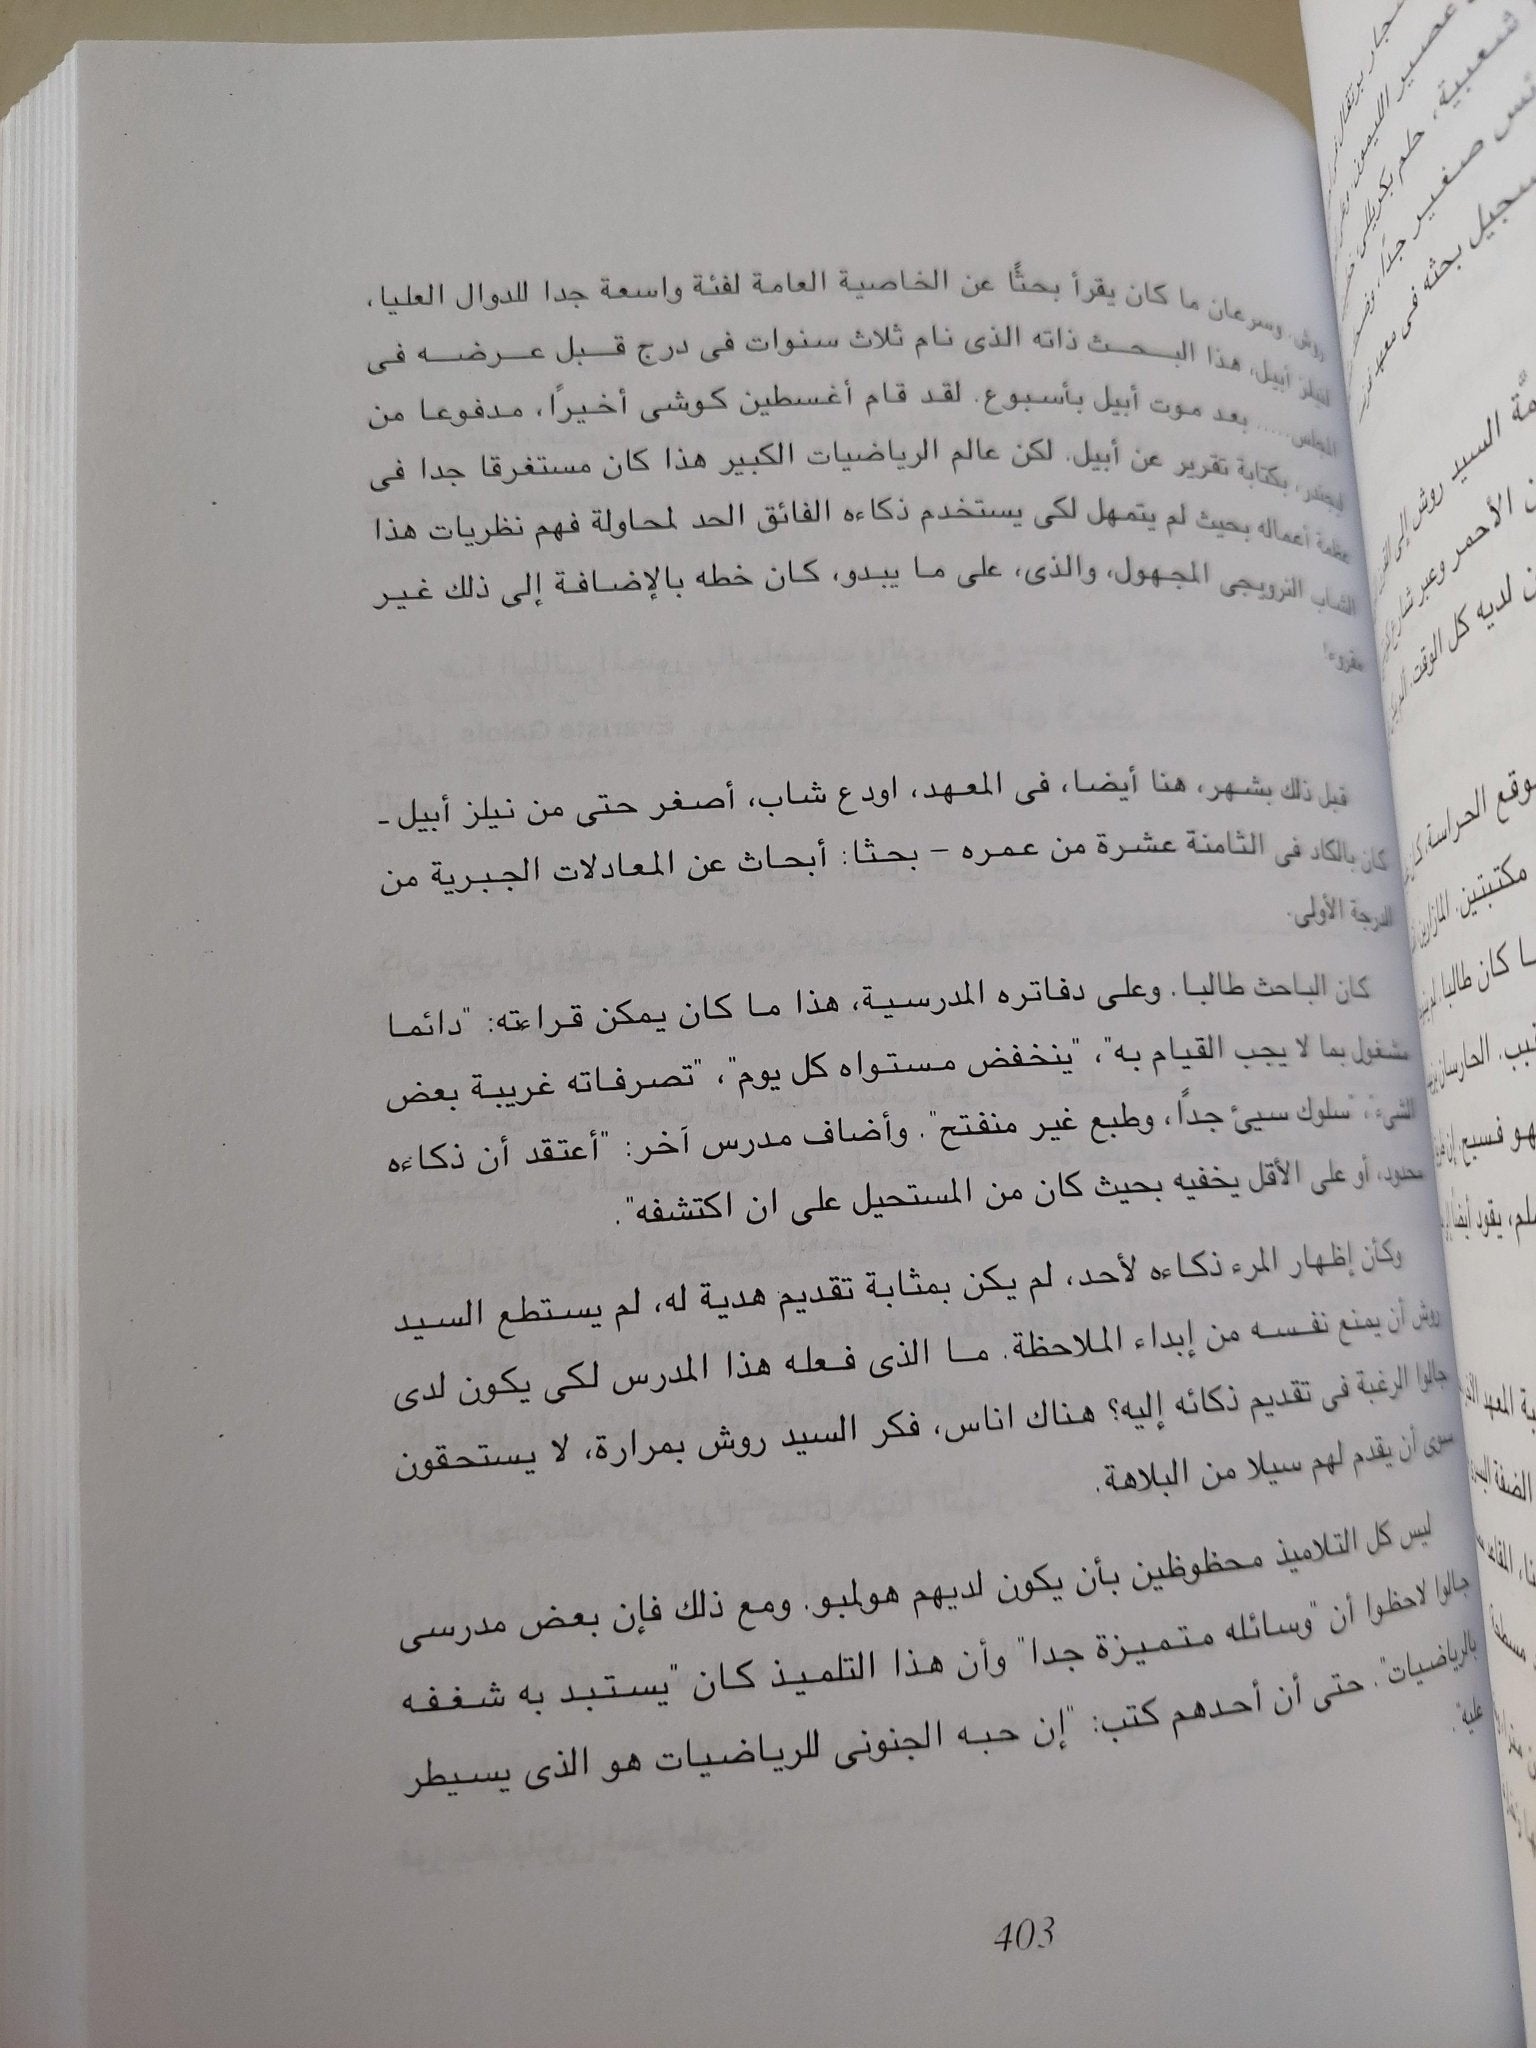 روش. وسرعان ما كان يقرأ بحثًا عن الخاصية العامة لفئة واسعة جدا للدوال العليا،
لنيلز أبيل، هذا البحث ذاته الذى نام ثلاث سنوات فى درج قبل عرضه فى
المجلس..... بعد موت أبيل بأسبوع. لقد قام أغسطين كوشى أخيرًا، مدفوعا من
لجندر، بكتابة تقرير عن أبيل. لكن عالم الرياضيات الكبير هذا كان مستغرقا جدا فى
عظمة أعماله بحيث لم يتمهل لكى يستخدم ذكاءه الفائق الحد لمحاولة فهم نظريات هذا
الشاب النرويجى المجهول، والذى، على ما يبدو، كان خطه بالإضافة إلى ذلك غير
مقروء!
قبل ذلك بشهر، هنا أيضا، فى المعهد، اودع شاب، أصغر حتى من نيلز أبيل -
كان بالكاد فى الثامنة عشرة من عمره – بحثا: أبحاث عن المعادلات الجبرية من
الدرجة الأولى.
كان الباحث طالبا. وعلى دفاتره المدرسية، هذا ما كان يمكن قراءته: "دائما
مشغول بما لا يجب القيام به"، "ينخفض مستواه كل يوم"، "تصرفاته غريبة بعض
الشىء"، "سلوك سيئ جداً، وطبع غير منفتح". وأضاف مدرس آخر: "أعتقد أن ذكاءه
محدود، أو على الأقل يخفيه بحيث كان من المستحيل على ان اكتشفه".
وكأن إظهار المرء ذكاءه لأحد، لم يكن بمثابة تقديم هدية له، لم يستطع السيد
روش أن يمنع نفسه من إبداء الملاحظة. ما الذى فعله هذا المدرس لكى يكون لدى
جالوا الرغبة فى تقديم ذكائه إليه؟ هناك اناس، فكر السيد روش بمرارة، لا يستحقون
سوى أن يقدم لهم سيلا من البلاهة.
ليس كل التلاميذ محظوظين بأن يكون لديهم هولمبو. ومع ذلك فإن بعض مدرسى
جالوا لاحظوا أن "وسائله متميزة جدا" وأن هذا التلميذ كان "يستبد به شغفه
بالرياضيات". حتى أن أحدهم كتب: "إن حبه الجنونى للرياضيات هو الذى يسيطر
عليه".
403
عصير الليمون
شعبية، حلم
صغير جدًا،
بحثه فى معهد
السيد روش إلى
الأحمر وعبر شارع
لديه كل الوقت.
موقع الحراسة، كان
مكتبتين.
كان طالبا
الحارسان
فسيح.
يقود أيضا
المعهد
الضفة